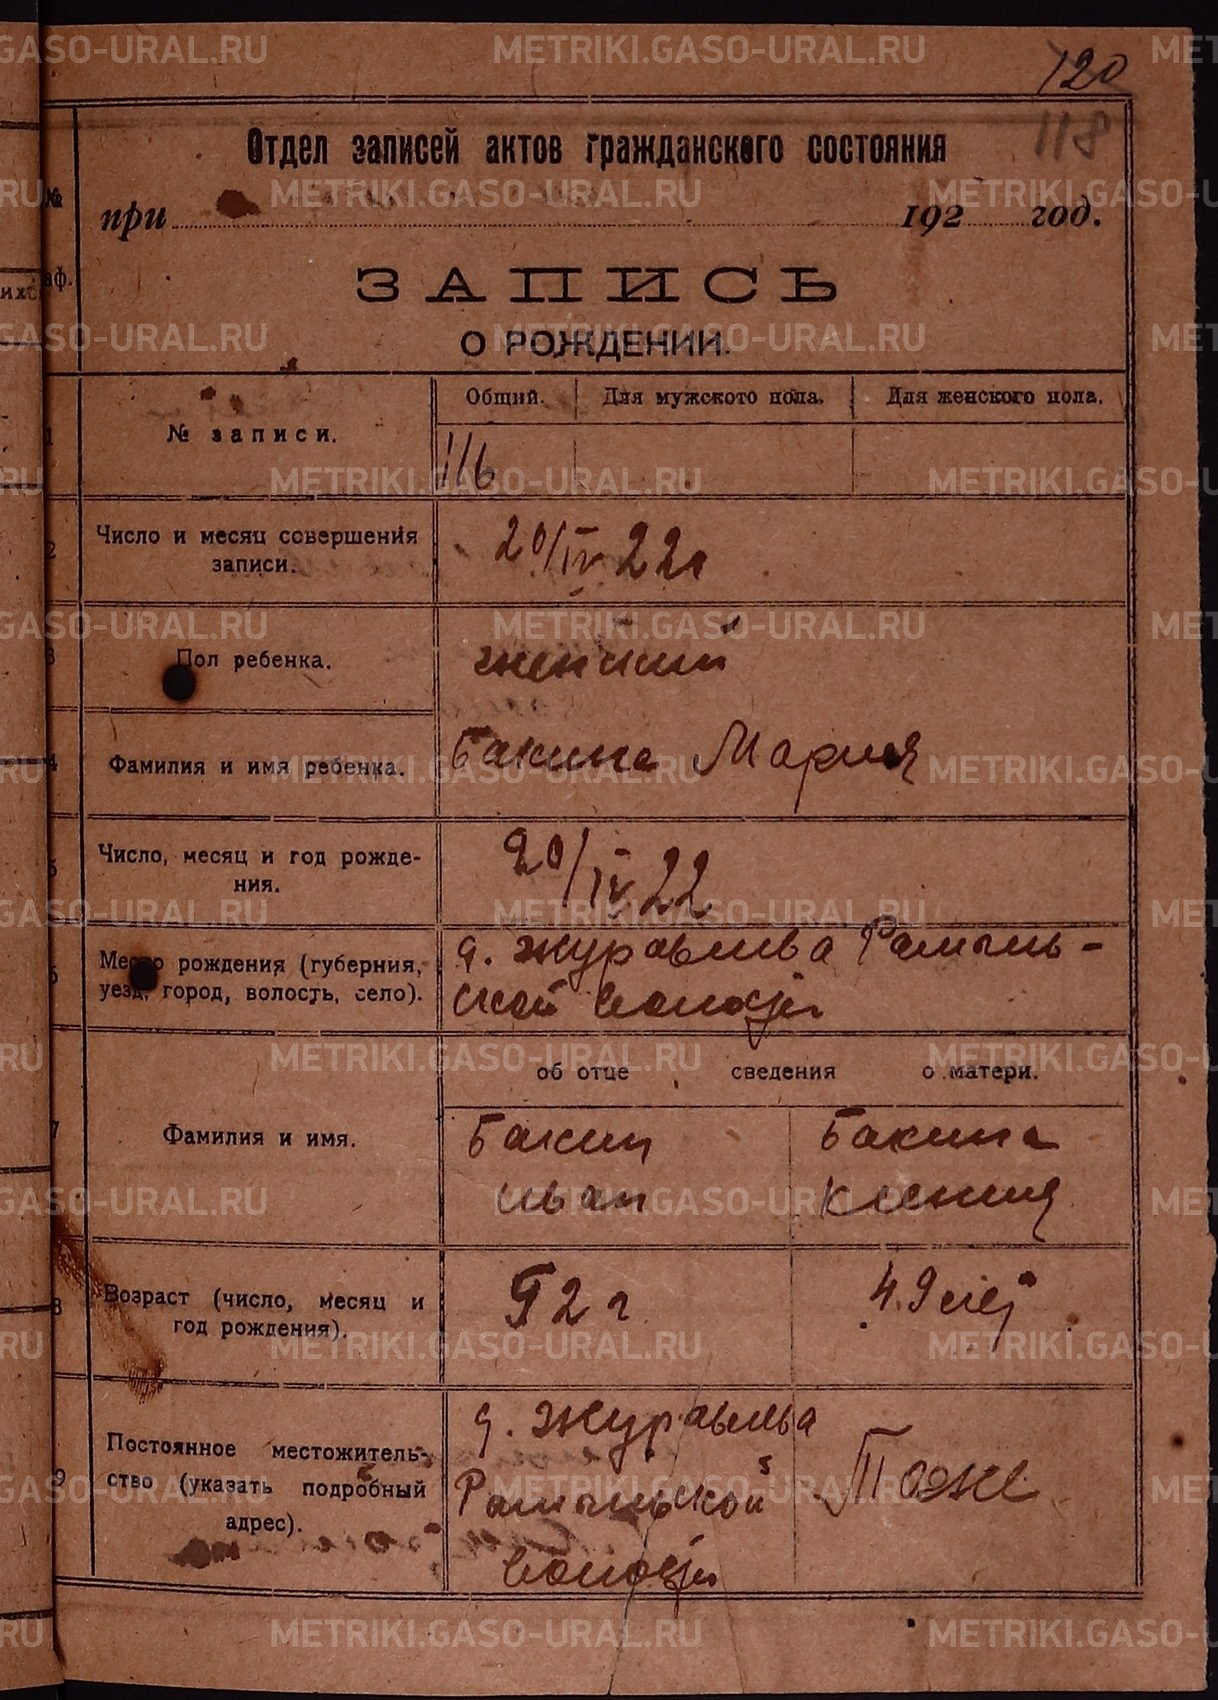 120
118
Отдел записей актов гражданского состояния
при 192 год.
ЗАПИСЬ
О РОЖДЕНИИ.
№ записи.
Общий. Для мужского пола. Для женского пола.
116
Число и месяц совершения
записи.
20/IV 22г
Пол ребенка.
женский
Фамилия и имя ребенка.
Бакина Мария
Число, месяц и год рожде-
ния.
20/IV 22
Место рождения (губерния,
уезд, город, волость, село).
д. Журавлева Рамыль-
ской волости
об отце сведения о матери.
Фамилия и имя.
Бакин Бакина
Иван Ксения
Возраст (число, месяц и
год рождения).
42 г лет
Постоянное местожитель-
ство (указать подробный
адрес).
д. Журавлева
Рамыльской
волости
Тоже
METRIKI.GASO-URAL.RU